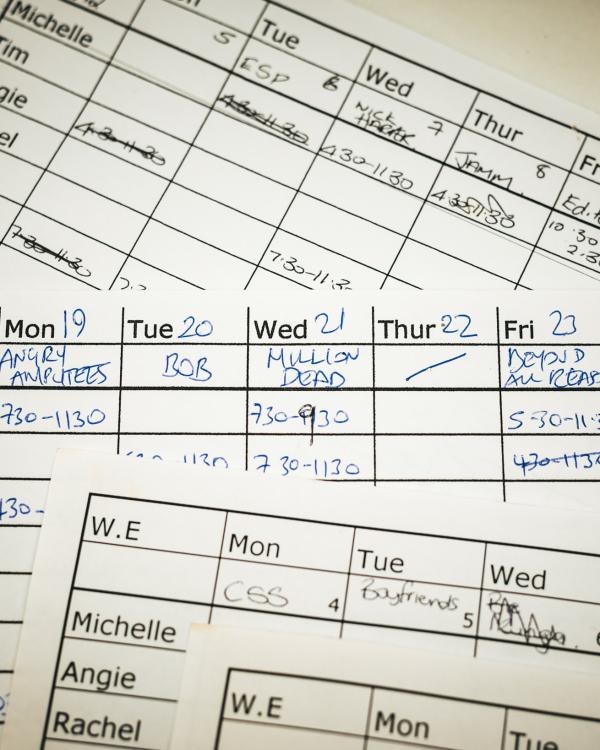 Michelle
5
Tue
ESP 6
Wed
7
Thur
JAMM. 8
Fr
4 30-11 30
4 30-11 30
4 30-11 30
10.30
2.30
7.30-11.30
7.30-11.30
Mon 19 Tue 20 Wed 21 Thur 22 Fri 23
ANGRY
AMPUTEES
BOB
MILLION
DEAD
BEYOND
ALL REAS
730-1130 5-30-11.
1130 7 30-1130 430-113
W.E Mon Tue Wed
CSS 4 Boyfriends 5
Michelle
Angie
Rachel
W.E Mon Tue